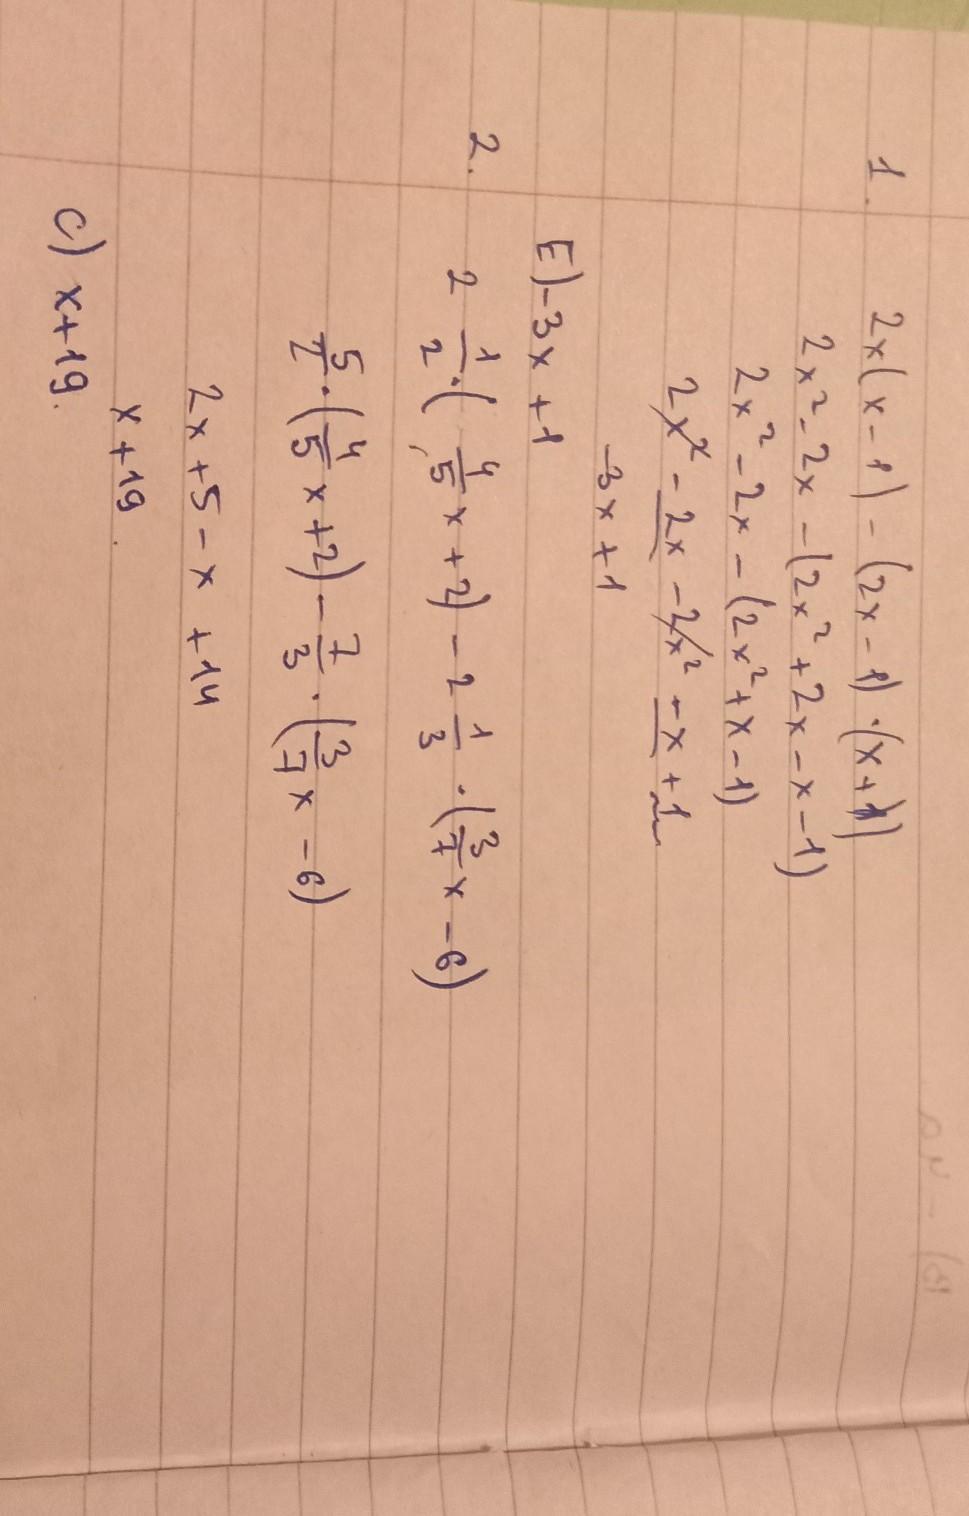 1. 2x(x-1)-(2x-1)·(x+1)
2x²-2x-(2x²+2x-x-1)
2x²-2x-(2x²+x-1)
2x²-2x-2x²-x+1
-3x+1
E)-3x+1
2. 2 1/2·(4/5x+2)-2 1/3·(3/7x-6)
5/2·(4/5x+2)-7/3·(3/7x-6)
2x+5-x+14
x+19.
C) x+19.